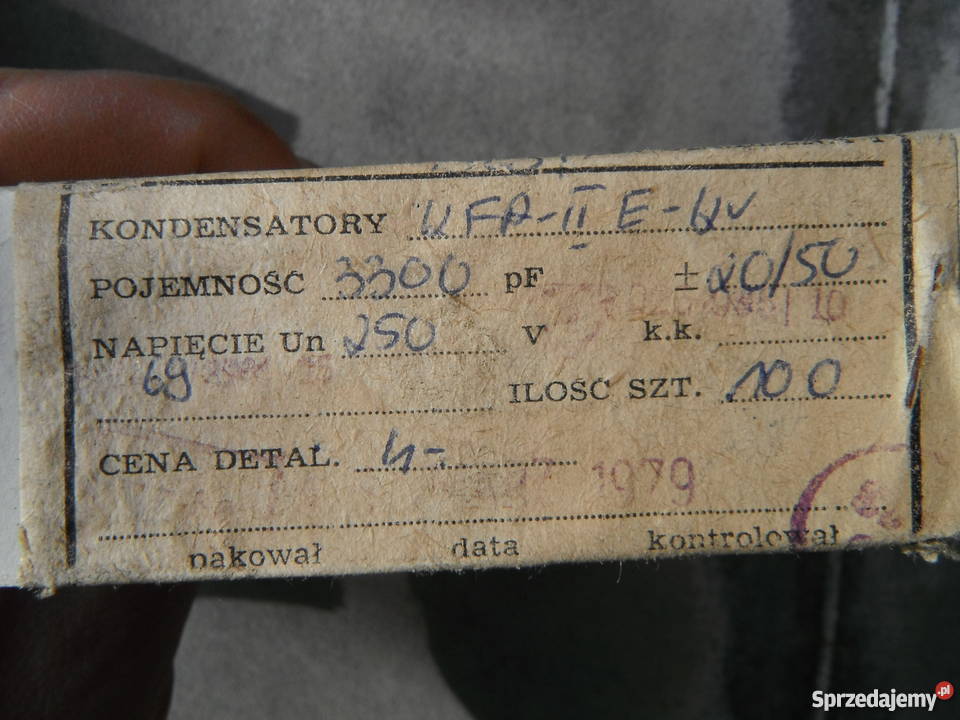 KONDENSATORY UFP-II E-
POJEMNOŚĆ 3300 pF ± 20/50
NAPIĘCIE Un 250 V k.k.
69
ILOŚĆ SZT. 100
CENA DETAL. 4-
1979
pakował data kontrolował
Sprzedajemy.pl